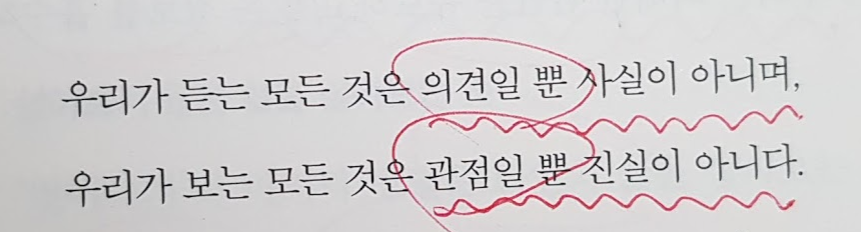 우리가 듣는 모든 것은 의견일 뿐 사실이 아니며,
우리가 보는 모든 것은 관점일 뿐 진실이 아니다.